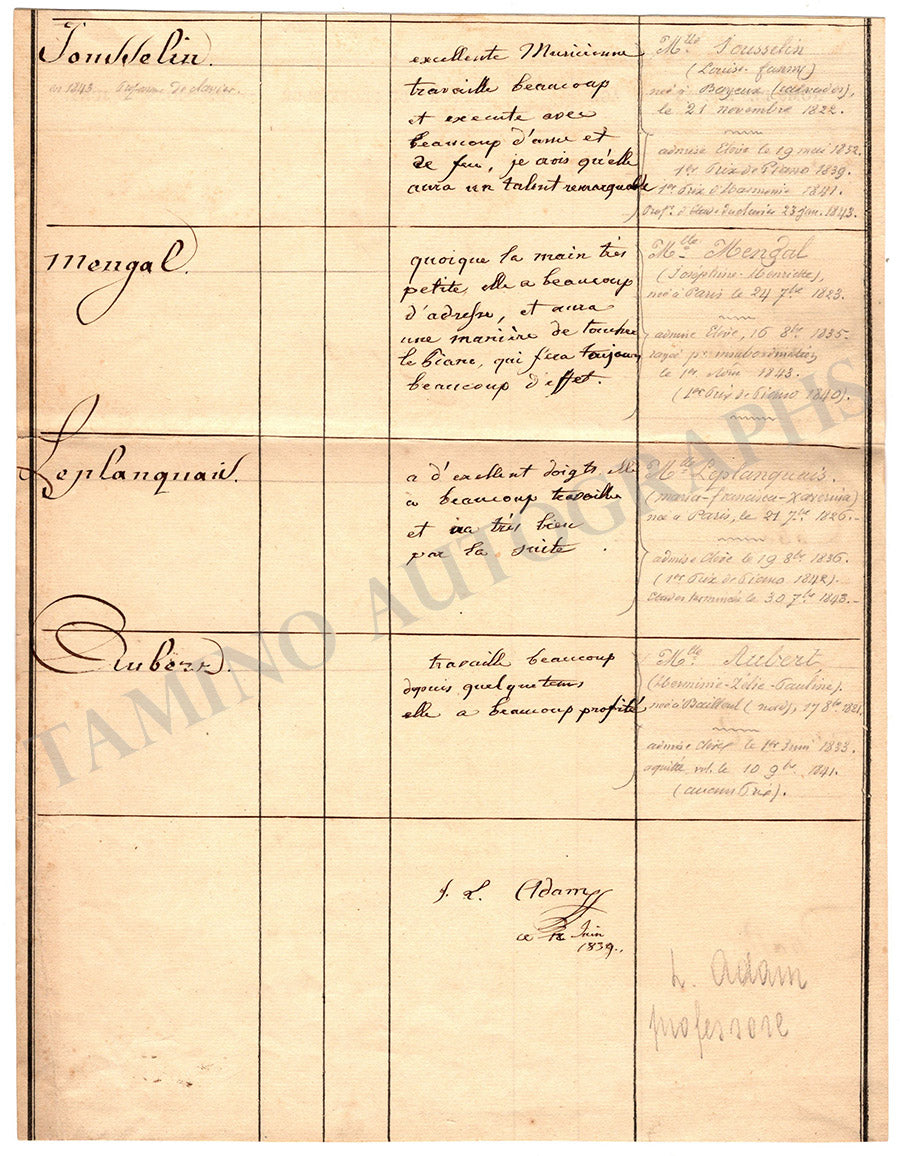 Jousselin.
en 1843 Professeur de clavier.
excellente Musicienne
travaille beaucoup
et execute avec
beaucoup d'ame et
de feu, je crois qu'elle
aura un talent remarquable
Mlle Jousselin
(Louise-fanny)
née à Bayeux (calvados),
le 21 novembre 1822.
admise Elève le 19 mai 1832.
1er Prix de Piano 1839.
1er Prix d'Harmonie 1841.
Profr d'Etude du clavier 23 jan. 1843.
Mengal.
quoique la main très
petite, elle a beaucoup
d'adresse, et aura
une manière de toucher
le Piano, qui fera toujours
beaucoup d'effet.
Mlle Mengal
(Joséphine-Henriette),
née à Paris le 24 7bre 1823.
admise Elève, 16 8bre 1835.
rayée pr insubordination
le 1er 1843.
(1er Prix de Piano 1840).
Leplanquais.
a d'excellent doigts, elle
a beaucoup travaillé
et ira très bien
par la suite.
Mlle Leplanquais.
(maria-francisca-xaverina)
née à Paris, le 21 7bre 1826.
admise Elève le 19 8bre 1836.
(1er Prix de Piano 1842).
Etudes terminées le 30 7bre 1843.
Aubert.
travaille beaucoup
depuis quelque tems
elle a beaucoup profité
Mlle Aubert,
(Herminie-Zélie-Pauline).
née à Bailleul (nord), 17 8bre 1821.
admise Elève le 1er Juin 1833.
a quitté vol. le 10 9bre 1841.
(aucun Prix).
J. L. Adam
ce 12 Juin
1839.
L. Adam
professore
TAMINO AUTOGRAPHS